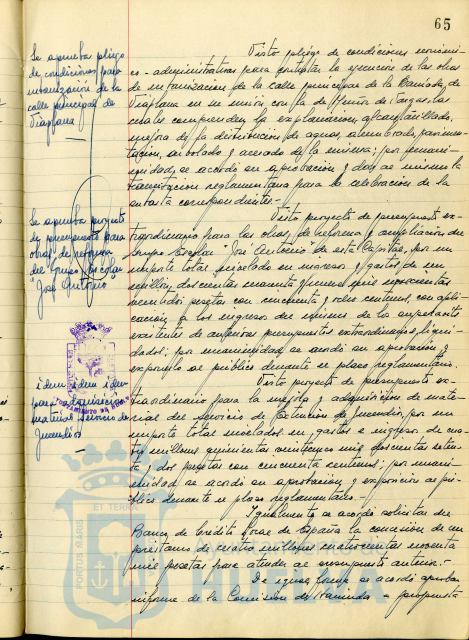 65
Se aprueba pliego
de condiciones para
urbanización de la
calle principal de
Viaplana
Visto pliego de condiciones económi-
co-administrativas para contratar la ejecución de las obras
de urbanización de la calle principal de la Barriada de
Viaplana en su unión con la de Muñoz de Vargas, las
cuales comprenden la explanación, alcantarillado,
mejora de la distribución de aguas, alumbrado, pavimen-
tación, arbolado y acerado de la misma; por unani-
midad se acordó su aprobación y dar al mismo la
tramitación reglamentaria para la celebración de la
subasta correspondiente.-
Se aprueba proyecto
de presupuesto para
obras de reforma
del Grupo Escolar
"José Antonio"
Visto proyecto de presupuesto ex-
traordinario para las obras de reforma y ampliación del
Grupo Escolar José Antonio de esta Capital, por un
importe total nivelado en ingresos y gastos de un
millón doscientas mil seiscientas
pesetas con cincuenta y ocho centimos, con apli-
cación a los ingresos del mismo de los
existentes de anteriores presupuestos extraordinarios, liqui-
dados; por unanimidad se acordó su aprobación y
exponerlo al público durante el plazo reglamentario.
idem idem idem
para adquisición
material servicio de
Incendios
Visto proyecto de presupuesto ex-
traordinario para la mejora y adquisición de mate-
rial del Servicio de Extinción de Incendios, por un
importe total nivelados en gastos e ingresos de cua-
tro millones quinientas veinticinco mil doscientas seten-
ta y dos pesetas con cincuenta centimos; por unani-
midad se acordó su aprobación y exposición al pú-
blico durante el plazo reglamentario.-
Igualmente se acordó solicitar del
Banco de Crédito Local de España la concesión de un
préstamo de cuatro millones cuatrocientas noventa
mil pesetas para atender al presupuesto anterior.-
De igual forma se acordó aprobar
informe de la Comisión de Hacienda a propuesta
AYUNTAMIENTO DE HUELVA
PORTUS MARIS
ET TERRA